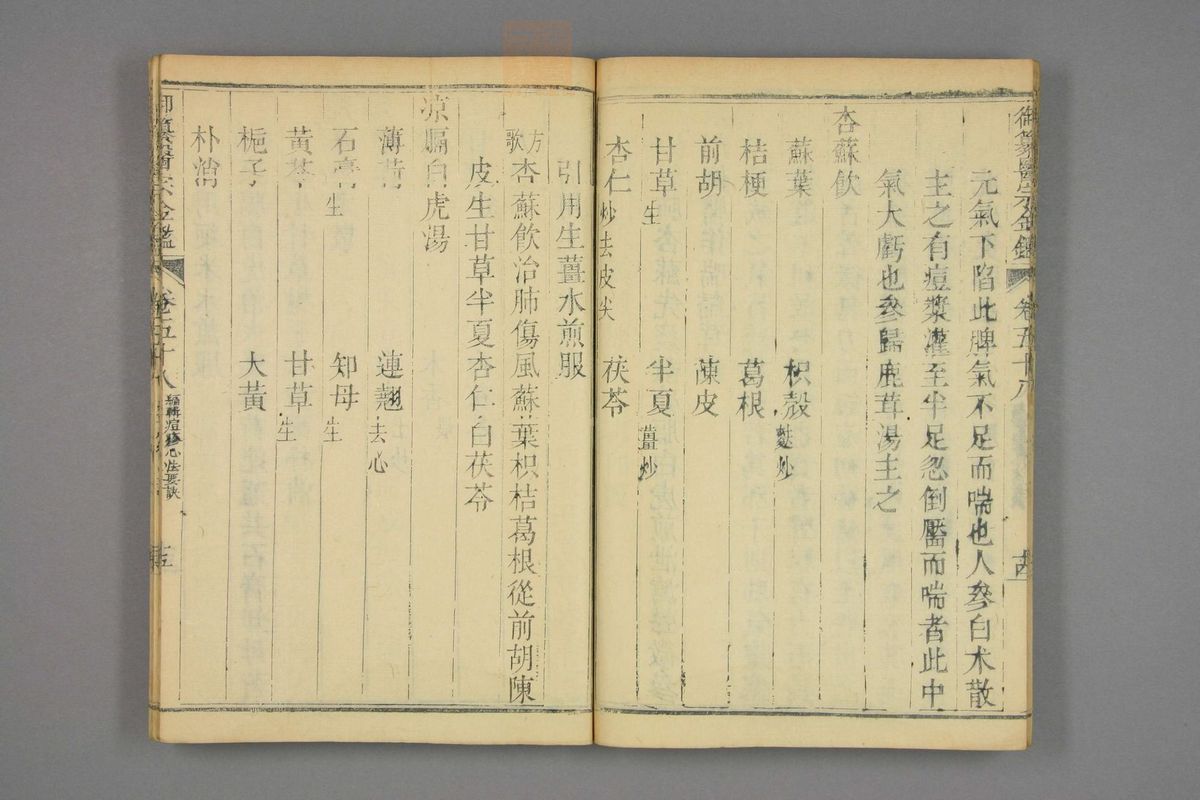 御纂醫宗金鑑 卷五十八 十四
元氣下陷此脾氣不足而喘也人參白朮散
主之有痘漿灌至半足忽倒靨而喘者此中
氣大虧也參歸鹿茸湯主之
杏蘇飲
蘇葉 枳殼麩炒
桔梗 葛根
前胡 陳皮
甘草生 半夏薑炒
杏仁炒去皮尖 茯苓
引用生薑水煎服
方歌杏蘇飲治肺傷風蘇葉枳桔葛根從前胡陳
皮生甘草半夏杏仁白茯苓
涼膈白虎湯
薄荷 連翹去心
石膏生 知母生
黃芩 甘草生
梔子 大黃
朴硝
御纂醫宗金鑑 卷五十八 編輯痘疹心法要訣 十五